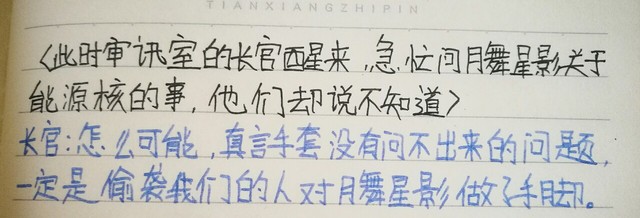 TIANXIANGZHIPIN
〈此时审讯室的长官醒来,急忙问月舞星影关于
能源核的事,他们却说不知道〉
长官:怎么可能,真言手套没有问不出来的问题,
一定是偷袭我们的人对月舞星影做了手脚。